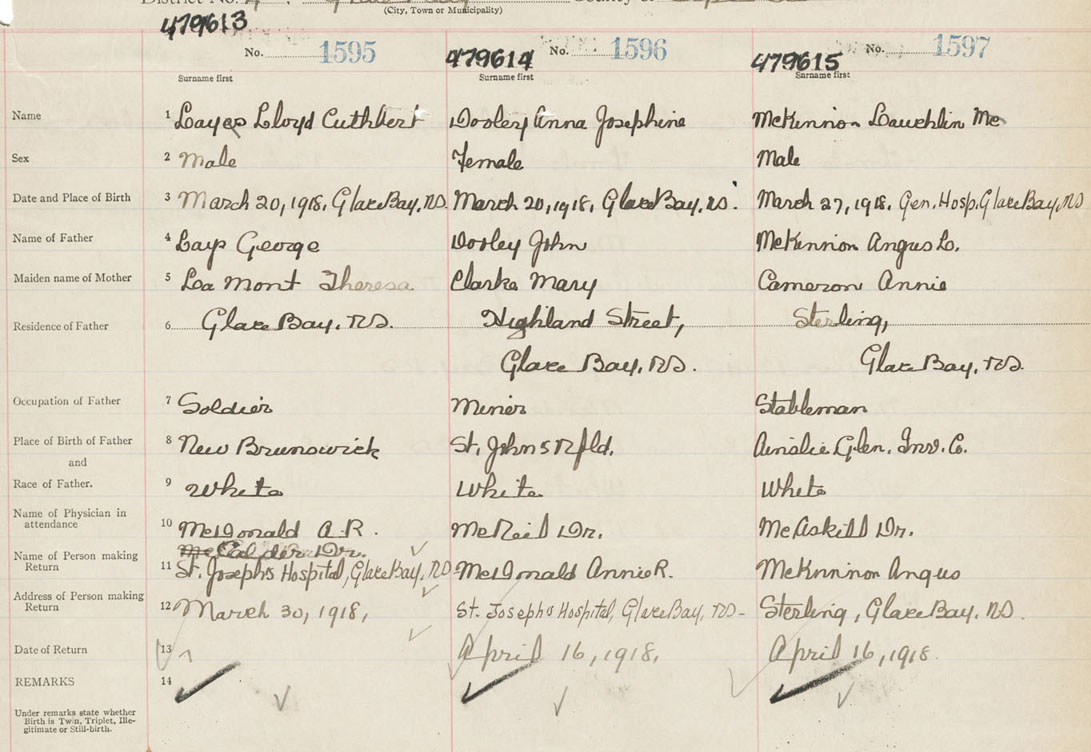 District No.
(City, Town or Municipality)
479613
No. 1595
479614 No. 1596
479615 No. 1597
Surname first
Surname first
Surname first
Name 1 Layes Lloyd Cuthbert Dooley Anna Josephine McKinnon Lauchlin Mc
Sex 2 Male Female Male
Date and Place of Birth 3 March 20, 1918, Glace Bay, N.S. March 20, 1918, Glace Bay, N.S. March 27, 1918. Gen. Hosp. Glace Bay, N.S
Name of Father 4 Lays George Dooley John McKinnon Angus L.
Maiden name of Mother 5 La Mont Theresa Clarke Mary Cameron Annie
Residence of Father 6 Glace Bay, N.S. Highland Street, Sterling,
Glace Bay, N.S. Glace Bay, N.S.
Occupation of Father 7 Soldier Miner Stableman
Place of Birth of Father 8 New Brunswick St. Johns Nfld. Ainslie Glen. Inv. Co.
and
Race of Father. 9 White White White
Name of Physician in attendance 10 McDonald A.R. McNeil Dr. McAskill Dr.
Dr.
Name of Person making Return 11 St. Josephs Hospital, Glace Bay, N.S McDonald Annie R. McKnninon Angus
Address of Person making Return 12 March 30, 1918, St. Josephs Hospital, Glace Bay, N.S- Sterling, Glace Bay, N.S.
Date of Return 13 April 16, 1918. April 16, 1918.
REMARKS 14
Under remarks state whether
Birth is Twin, Triplet, Ille-
gitimate or Still-birth.